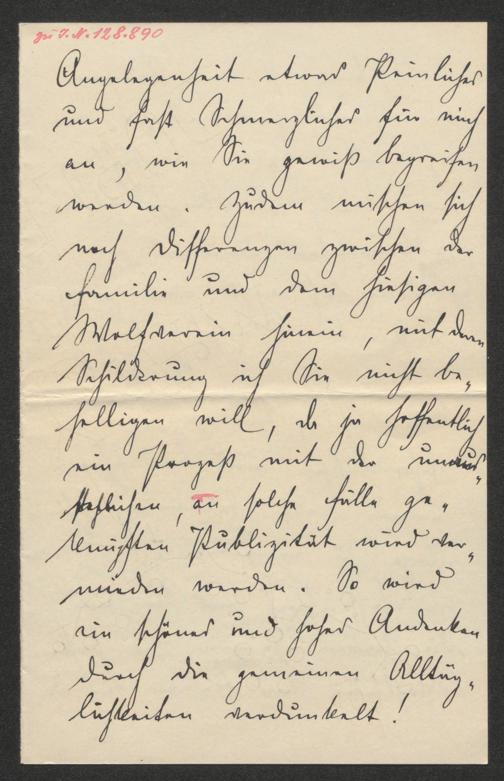 zu I.N. 128.890
Angelegenheit etwas Peinliches
und fast Schmerzliches für mich
an, wie Sie gewiß begreifen
werden. Zudem mischen sich
noch Differenzen zwischen der
Familie und dem hiesigen
Wolfverein hinein, mit deren
Schilderung ich Sie nicht be„
helligen will, da ja hoffentlich
ein Prozeß mit der unaus„
stehlichen, an solche Fälle ge„
knüpften Publizität wird ver„
mieden werden. So wird
ein schönes und hohes Andenken
durch die gemeinen Alltäg„
lichkeiten verdunkelt!